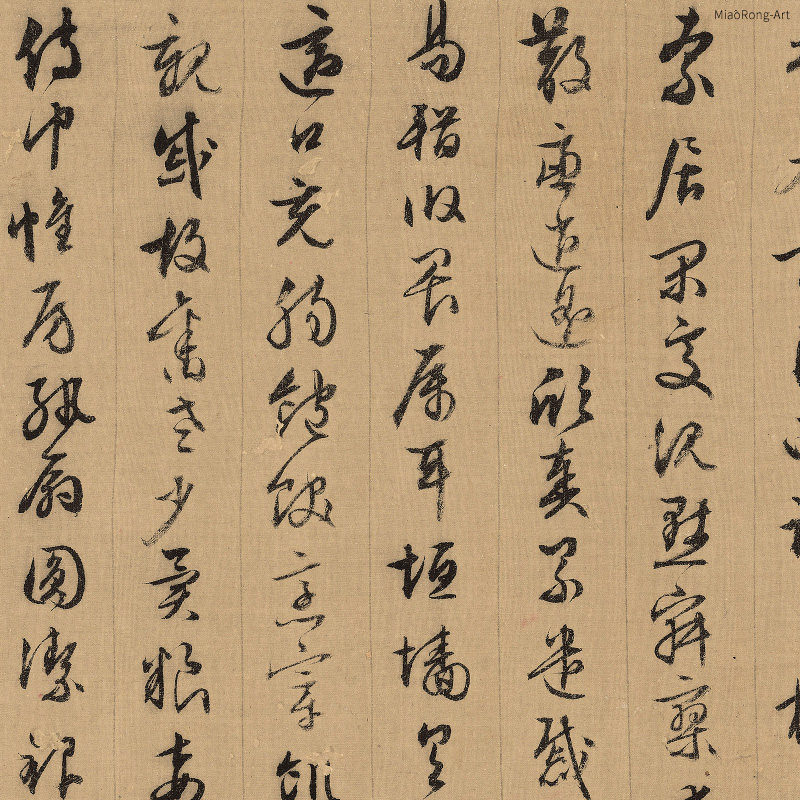 MiaoRong-Art
索居閑處沉默寂寥
散慮逍遙欣奏累遣慼
易輶攸畏屬耳垣墻具
適口充腸飽飫烹宰飢
親戚故舊老少異粮妾
侍巾帷房紈扇圓潔銀